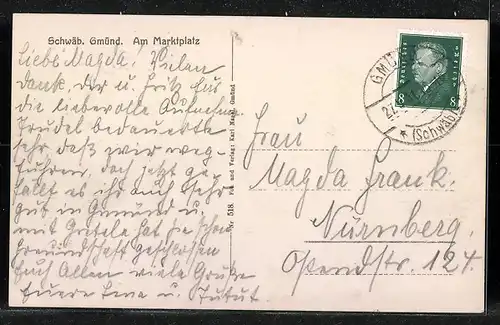 Schwäb. Gmünd. Am Marktplatz
Liebe Magda! Vielen
Dank, dir u. Fritz für
die liebevolle Aufnahme
Trudel bedauerte
sehr daß wir weg-
fuhren, doch jetzt ge-
fällt es ihr auch sehr
gut in Gmünd u.
mit Gustele hat sie schon
Freundschaft geschlossen
Euch Allen viele Grüße
Eure Lina u.
Nr. 518. Fot. und Verlag: Karl Gmünd
GMÜ
(Schwäb)
Deutsches Reich
8 8
Frau
Magda Frank.
Nürnberg.
124.